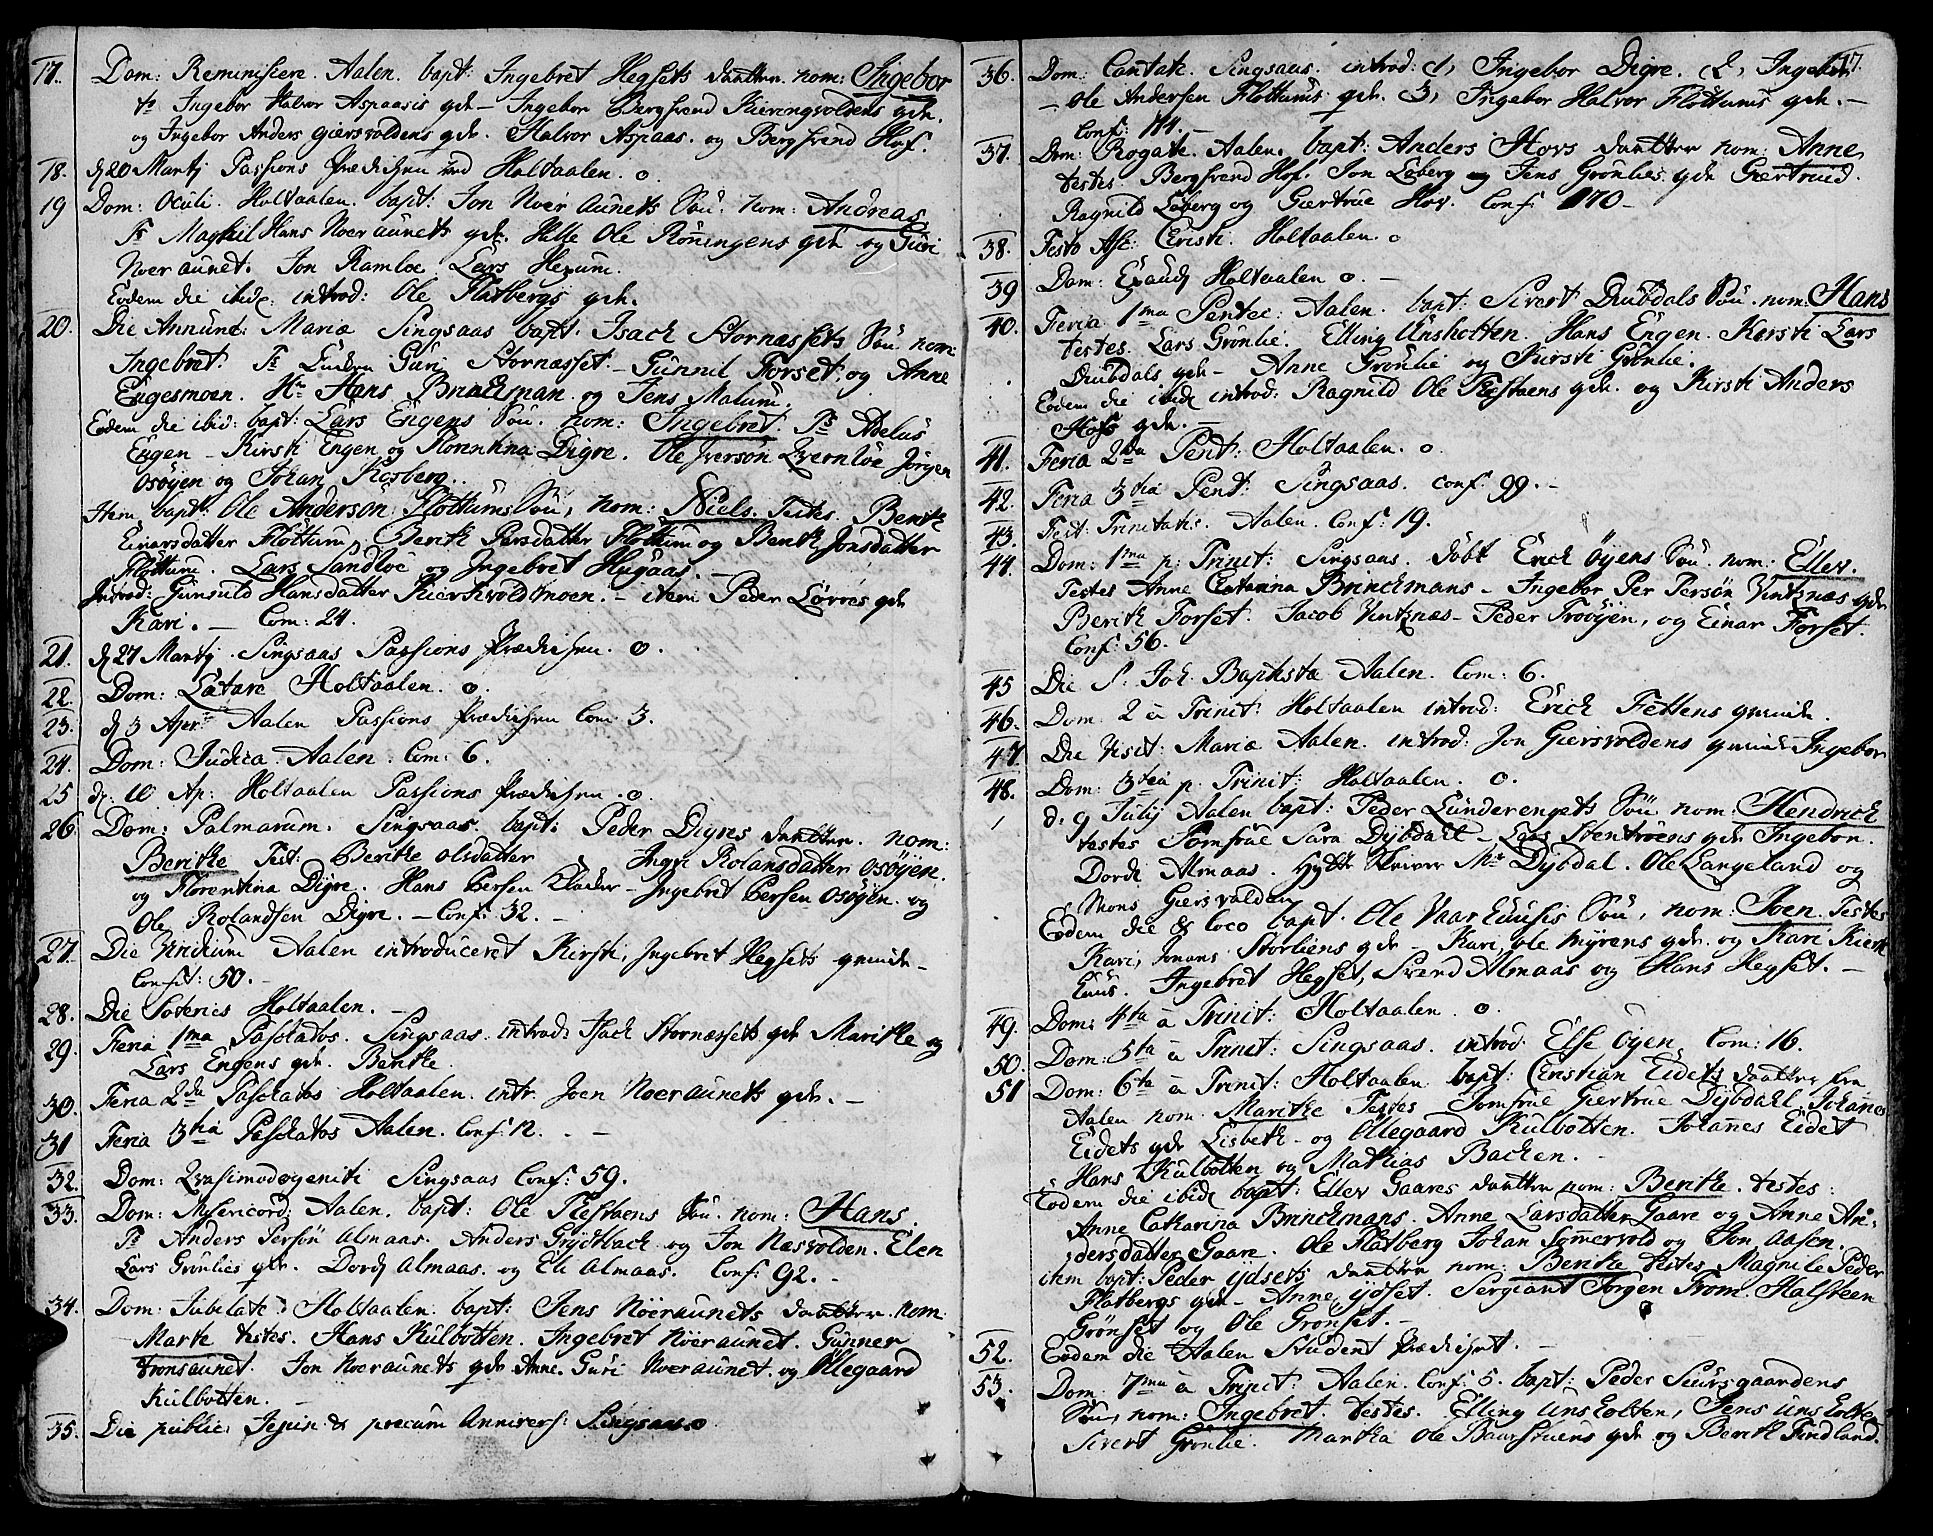 17. Dom: Reminiscere. Aalen. bapt: Ingebret Hegsets daatter. nom: Ingebor
Ts Ingebor Halvor Aspaasis qde – Ingebor Bergsvend Kieringvoldens qde.
og Ingebor Anders Giersvoldens qde. Halvor Aspaas. og Bergsvend Hof.
18. d 20 Martj Passions Prædichen ved Holtaalen. o.
19 Dom: Oculi. Holtaalen. bapt: Jon Noeraunets Søn. nom: Andreas
Ts Maghil Hans Noeraunets qde. Hille Ole Røningens qde og Guri
Noeraunet. Jon Ramloe. Lars Hexum.
Eodem die ibid: introd: Ole Flatbergs qde.
20. Die Annunt: Mariæ Singsaas bapt. Isach Stornæssets Søn nom:
Ingebret. Ts Guri Stornæsset. – Gunnil Forset, og Anne
Engesmoen. Hr Hans Brinckman og Jens Malum.
Eodem die ibid: bapt: Lars Engens Søn. nom: Ingebret. Ts Adelus
Engen – Kirsti Engen og Florentina Digre. Ole Iversøn Qvernløe Jørgen
Osøyen og Johan Kosberg.
Item bapt: Ole Andersøn Flottums Søn, nom: Niels. Testes. Berith
Einarsdatter Flottum, Berith Persdatter Flottum og Berith Jonsdatter
Flottum. Lars Sandløe og Ingebret Hugaas. –
Introd: Gunuld Hansdatter Kierkvoldmoen. – item Peder Løvøes qde
Kari. – Com: 24.
21. d 27 Martj. Singsaas Passions Prædichen. o.
22. Dom: Lætare Holtaalen. o.
23. d 3 Apr. Aalen Passions Prædichen Com: 3.
24. Dom: Judica. Aalen. Com: 6.
25 d: 10 Ap: Holtaalen Passions Prædichen. o.
26. Dom: Palmarum. Singsaas. bapt: Peder Digres daatter. nom:
Berithe Test: Berithe Olsdatter Ingri Rolansdatter Osøyen.
og Florentina Digre. Hans Persen – Ingebret Persen Osøyen. og
Ole Rolandsen Digre. – Conf: 32. –
27. Die Viridium Aalen introduceret Kirsti, Ingebret Hegsets qvinde –
Conf: 50. –
28. Die Soteries Holtaalen. –
29. Feria 1ma Paschatos. Singsaas. introd: Isach Stornæssets qde Marithe og
Lars Engens qde. Berithe.
30. Feria 2da Paschatos Holtaalen. intr. Joen Noeraunets qde. –
31 Feria 3tia Paschatos Aalen. Conf: 12. –
32. Dom: Qvasimodogeniti Singsaas Conf: 59.
33. Dom: Misericord: Aalen. bapt: Ole Flestaens Søn. nom: Hans.
Ts Anders Persøn Almaas. Anders Grydtbach og Jon Næsvolden. Elen
Lars Grønlies qde. Dordj Almaas. og Eli Almaas. Conf: 92. –
34. Dom: Jubilate: Holtaalen. bapt: Jens Nøeraunets daatter. nom:
Marte testes. Hans Kulbotten. Ingebret Noeraunet. Gunner
Tronsaunet. Jon Noeraunets qde Anne. Guri Noeraunet. og Ollegaard
Kulbotten. –
35. Die public: Jejun & precum Annivers: Singsaas o
17.
36. Dom: Cantate. Singsaas. introd: 1, Ingebor Digre. 2, Ingebor
– Ole Andersen Flottums qde. 3, Ingebor Halvor Flottums qde. –
Conf: 114. –
37. Dom: Rogate. Aalen. bapt: Anders Hovs daatter nom: Anne,
testes. Bergsvend Hof. Jon Løberg og Jens Grønlies qde Giertrud.
Ragnild Løberg og Giertrue Hov. Conf: 170 –
38. Festo Asc: Christi. Holtaalen. o
39 Dom: Exaudj Holtaalen o. –
40. Feria 1ma Pentec: Aalen. bapt: Sivert Diubdals Søn. nom: Hans
testes. Lars Grønlie. Elling Unsholtten. Hans Engen. Kirsti Lars
Diubdals qde – Anne Grønlie og Kirsti Grønlie.
Eodem die ibid introd: Ragnild Ole Flestaens qde. og Kirsti Anders
Hofs qde. –
41. Feria 2da Pent: Holtaalen. o.
42. Feria 3tia Pent: Singsaas. Conf: 99. –
43. Fest: Trinitatis. Aalen. Conf: 19.
44. Dom: 1ma p: Trinit: Singsaas. døbt Erich Øyens Søn. nom: Ellev.
Testes Anne Catarina Brinckmans – Ingebor Per Persøn Vinsnæs qde
Berith Forset. Jacob Vinsnæs – Peder Troøyen, og Einar Forset.
Conf: 56.
45 Die S. Joh. Baptistæ Aalen. Com: 6.
46. Dom: 2 a Trinit: Holtaalen introd: Erich Fettens qvinde.
47. Die Visit: Mariæ Aalen. introd: Jon Giersvoldens qvinde Ingebor
48. Dom: 3tia p. Trinit: Holtaalen. o.
d: 9 Julij Aalen bapt: Peder Lunderengets Søn, nom: Hendrich
testes Jomfrue Sara Dybdahl – Lars Stentrøens qde Ingebor.
Dordj Almaas. Hytte Skriver Mr Dybdal. Ole Langeland og
Mons Giersvolden
Eodem die & loco bapt. Ole Vaarhuusis Søn, nom: Joen. Testes
Kari, Jonas Storliens qde – Kari, Ole Myrens qde. og Kari Kierk
huus. Ingebret Hegset, Svend Almaas og Hans Hegset. –
49. Dom: 4ta a Trinit: Holtaalen. o
50. Dom: 5ta a Trinit: Singsaas. introd. Else Øyen. Com: 16.
51 Dom: 6ta a Trinit: Holtaalen bapt: Christian Eidets daatter fra
Aalen nom. Marithe Testes Jomfrue Giertrue Dybdahl. Johannes
Eidets qde Lisbeth – og Ollegaard Kulbotten. Johannes Eidet
Hans Kulbotten og Mathias Bachen. –
Eodem die ibid bapt: Ellev Gaares daatter nom: Berithe. testes:
Anne Catharina Brinckmans. Anne Larsdatter Gaare og Anne An-
dersdatter Gaare. Ole Flatberg Johan Somervold og Jon Aasen.
item bapt: Peder Ydsets daatter nom: Berithe testes Magnild Peder
Flatbergs qde – Anne Ydset. Sergiant Jørgen From. Halsteen
Grønset og Ole Grønset. –
52. Eodem die Aalen Student Prædichet. –
53. Dom: 7ma a Trinit: Aalen. Conf: 5. bapt: Peder Siursgaardens
Søn, nom: Ingebret. testes. Elling Unsholten, Jens Unsholten
Sivert Grønlie. Martha Ole Baarstuens qde og Berith Findland.